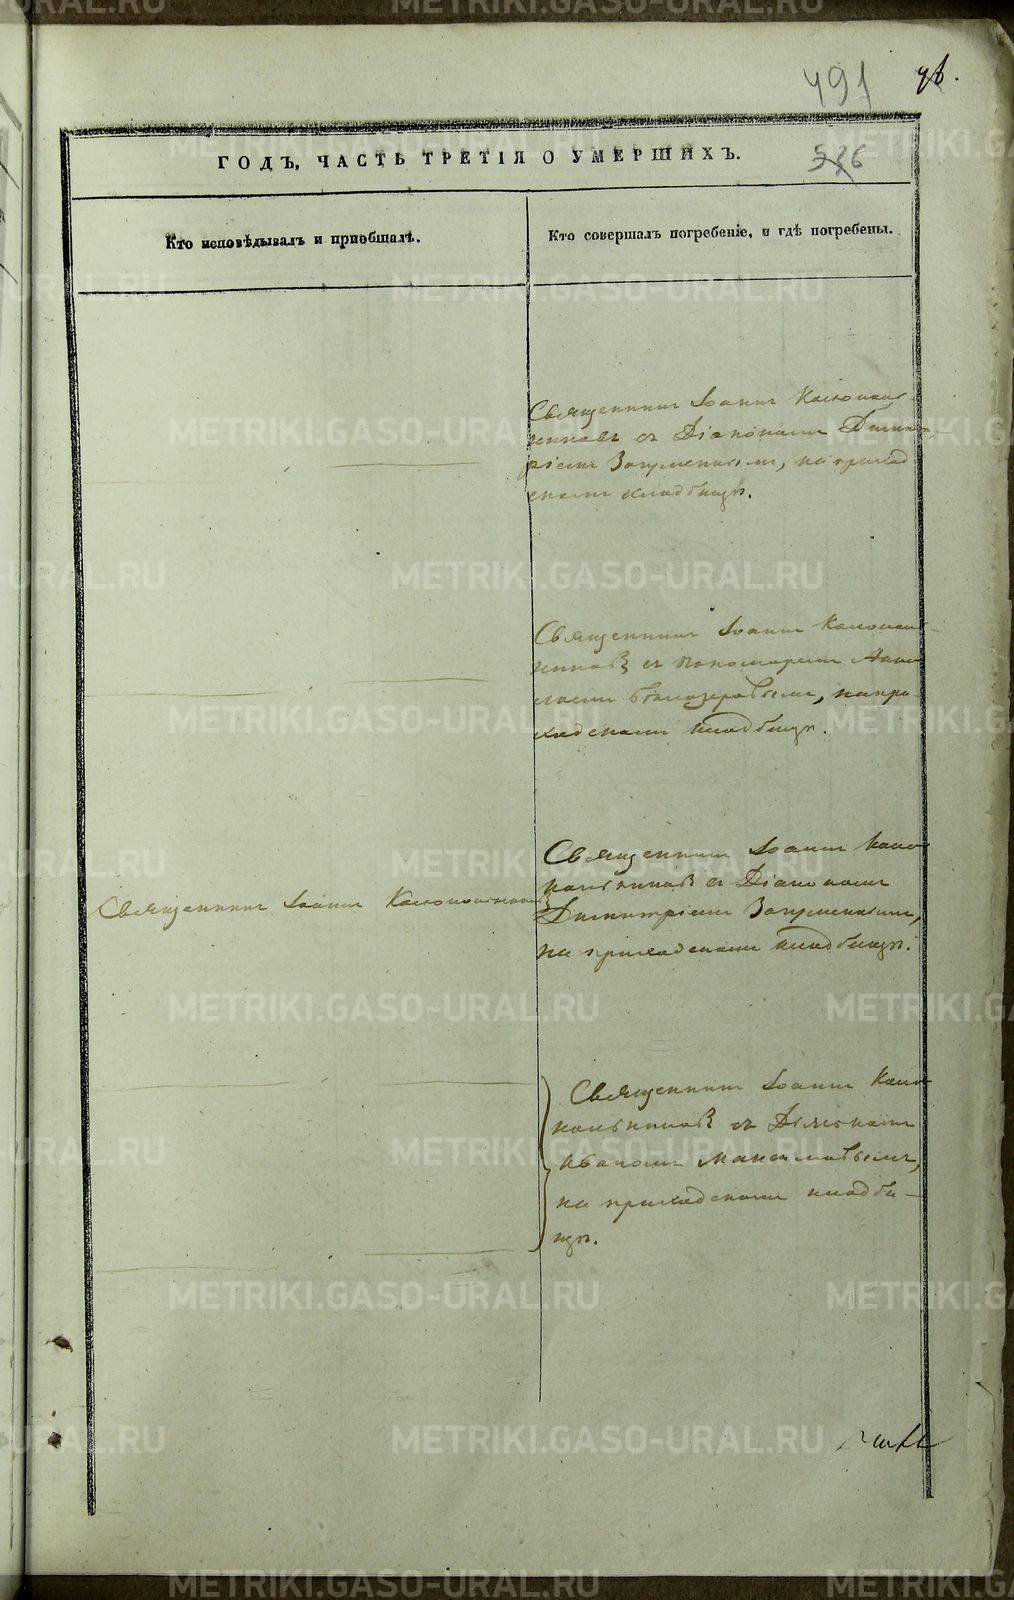 491
96.
536
ГОДЪ, ЧАСТЬ ТРЕТІЯ О УМЕРШИХЪ.
Кто исповѣдывалъ и пріобщалъ.
Кто совершалъ погребеніе, и гдѣ погребены.
Священникъ Іоаннъ Колоколь-
никовъ съ Діакономъ Димит-
ріемъ на приход
скомъ кладбищѣ.
Священникъ Іоаннъ Колоколь-
никовъ съ пономаремъ
напри
ходскомъ кладбищѣ.
Священникъ Іоаннъ Колокольниковъ
Священникъ Іоаннъ Коло
кольниковъ съ Діакономъ
Димитріемъ
на приходскомъ кладбищѣ.
Священникъ Іоаннъ Коло
кольниковъ съ Дьячкомъ
Иваномъ Максимовымъ,
на приходскомъ кладби-
щѣ.
METRIKI.GASO-URAL.RU